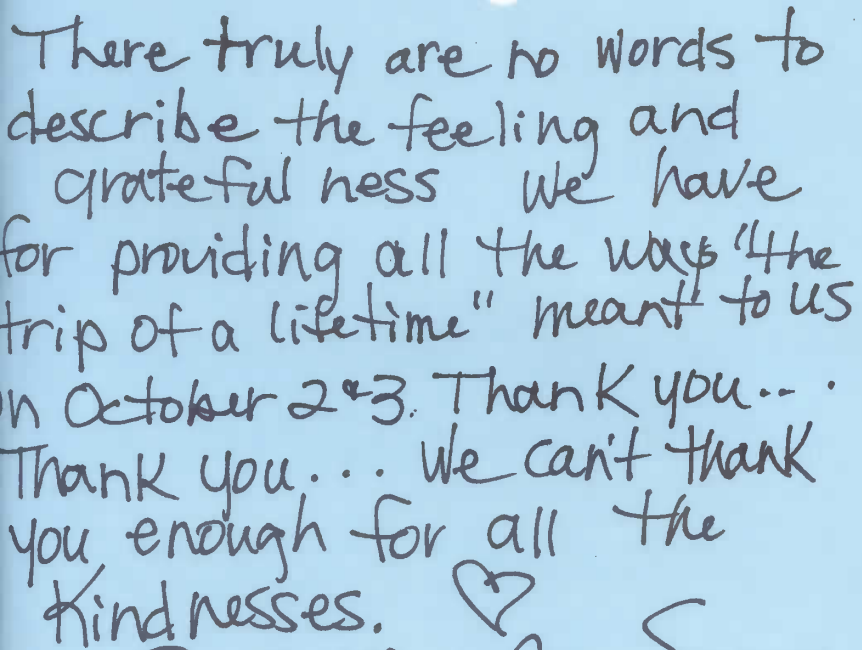 There truly are no words to
describe the feeling and
grateful ness we have
for providing all the ways "the
trip of a lifetime" meant to us
in October 2&3. Thank you...
Thank you... We can't thank
you enough for all the
Kindnesses. ♡